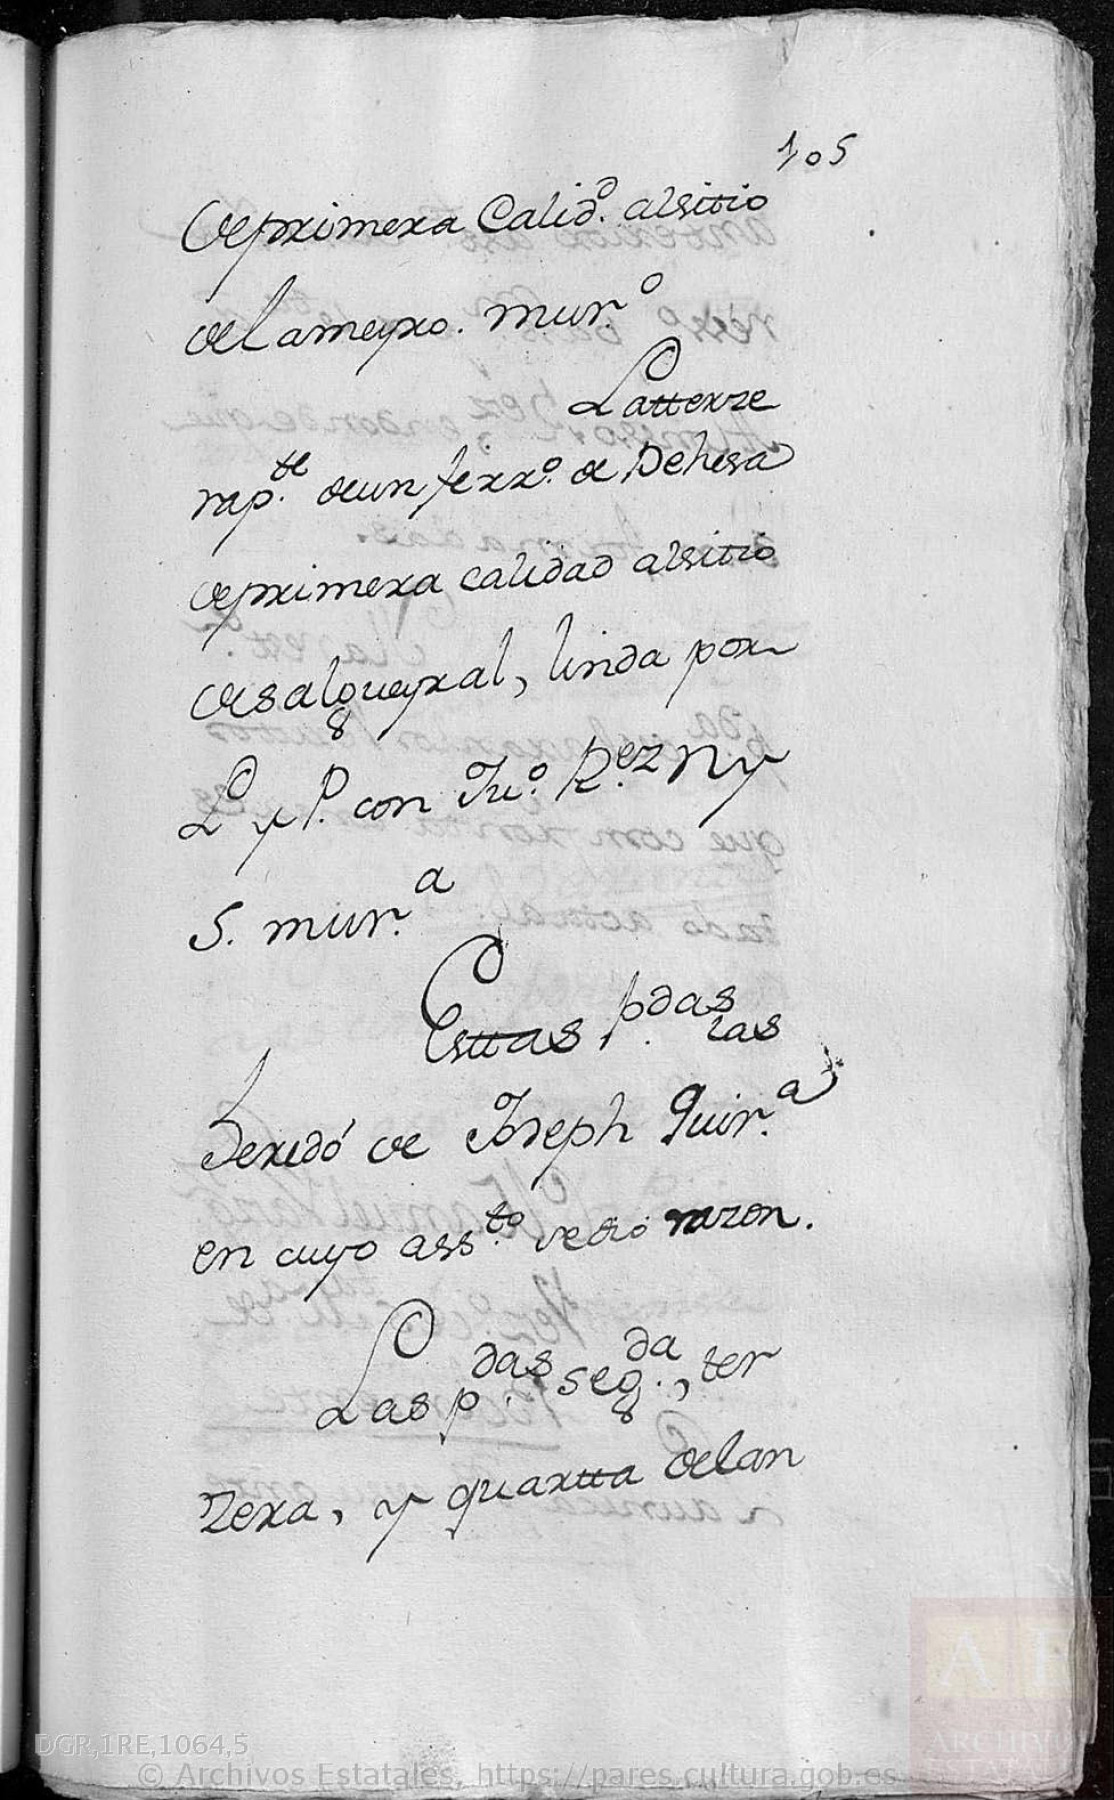 105
de primera Calidd. al sitio
de Lameyro. murº
La tterze
rap.te de un ferrº. de Dehesa
de primera calidad al sitio
de salgueyral, linda por
L y P. con Juº. Rez N y
S. mur.a
Esttas p.das las
heredó de Joseph Quir.a
en cuyo ass.to se dió razon.
Las p.das seg.da, ter
zera, y quartta delan
DGR,1RE,1064,5
© Archivos Estatales, https://pares.cultura.gob.es